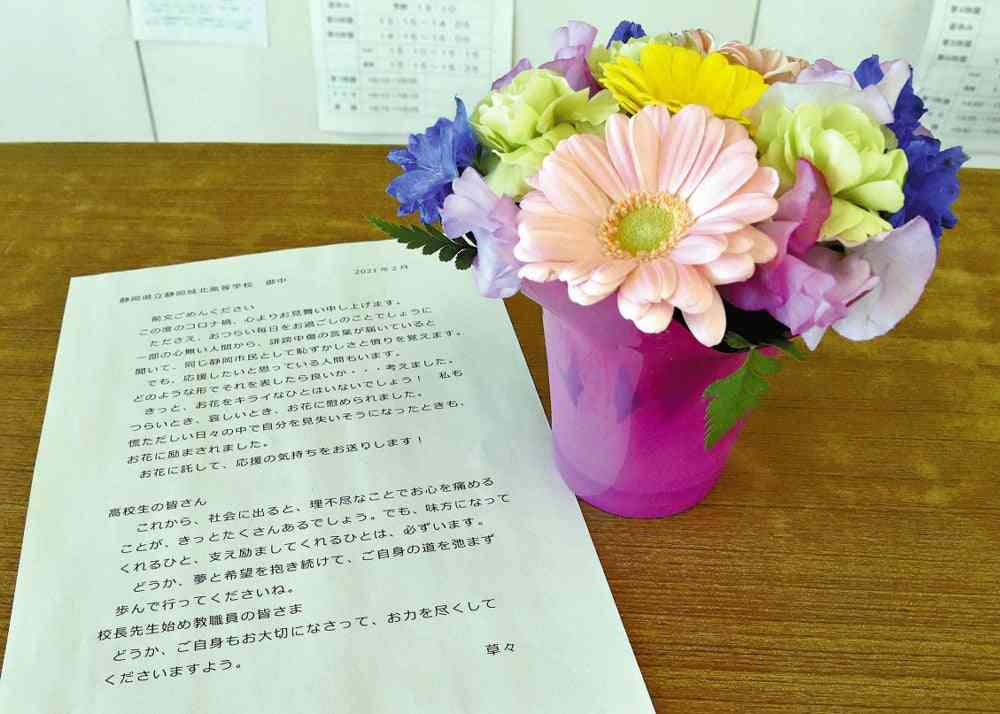 2021年2月
静岡県立静岡城北高等学校 御中
前文ごめんください
この度のコロナ禍、心よりお見舞い申し上げます。
ただざえ、おつらい毎日をお過ごしのことでしょうに
一部の心無い人間から、誹謗中傷の言葉が届いていると
聞いて、同じ静岡市民として恥ずかしさと憤りを覚えます。
でも、応援したいと思っている人間もいます。
どのような形でそれを表したら良いか・・・考えました。
きっと、お花をキライなひとはいないでしょう! 私も
つらいとき、哀しいとき、お花に慰められました。
慌ただしい日々の中で自分を見失いそうになったときも、
お花に励まされました。
お花に託して、応援の気持ちをお送りします!
高校生の皆さん
これから、社会に出ると、理不尽なことでお心を痛める
ことが、きっとたくさんあるでしょう。でも、味方になって
くれるひと、支え励ましてくれるひとは、必ずいます。
どうか、夢と希望を抱き続けて、ご自身の道を弛まず
歩んで行ってくださいね。
校長先生始め教職員の皆さま
どうか、ご自身もお大切になさって、お力を尽くして
くださいますよう。
草々